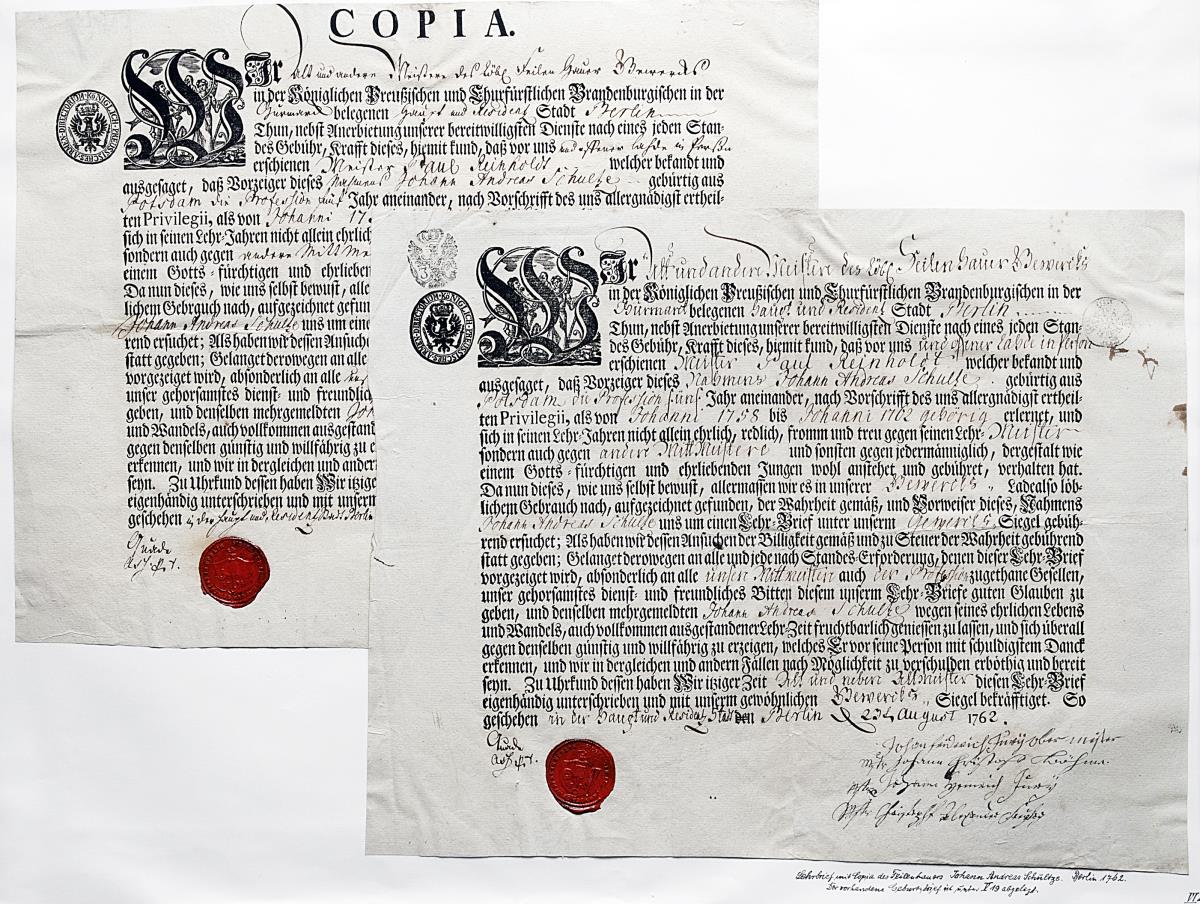 COPIA.
WIr Alt und andere Meistere des Löbl. Feilen Hauer Gewercks
in der Königlichen Preußischen und Churfürstlichen Brandenburgischen in der
Curmarck belegenen Haupt und Residentz Stadt Berlin
Thun, nebst Anerbietung unserer bereitwilligsten Dienste nach eines jeden Stan-
des Gebühr, Krafft dieses, hiemit kund, daß vor uns und offener Lahde in Persohn
erschienen Meister Paul Reinholdt welcher bekandt und
ausgesaget, daß Vorzeiger dieses Nahmens Johann Andreas Schultze gebürtig aus
Potsdam die Profession fünf Jahr aneinander, nach Vorschrifft des uns allergnädigst ertheil-
ten Privilegii, als von Johanni
sich in seinen Lehr-Jahren nicht allein ehrlich
sondern auch gegen andere Mitt
einem Gotts-fürchtigen und ehrlieben
Da nun dieses, wie uns selbst bewust, aller
lichem Gebrauch nach, aufgezeichnet gefun
Johann Andreas Schultze uns um eine
rend ersuchet; Als haben wir dessen Ansuche
statt gegeben; Gelanget derowegen an alle
vorgezeiget wird, absonderlich an alle
unser gehorsamstes dienst- und freundlich
geben, und denselben mehrgemeldten
und Wandels, auch vollkommen ausgestand
gegen denselben günstig und willfährig zu e
erkennen, und wir in dergleichen und ander
seyn. Zu Uhrkund dessen haben Wir itzige
eigenhändig unterschrieben und mit unserm
geschehen in der Haupt und Residentz Stadt Berlin
Quade
WIr Alt und andere Meistere des Löbl. Feilen Hauer Gewercks
in der Königlichen Preußischen und Churfürstlichen Brandenburgischen in der
Curmarck belegenen Haupt und Residentz Stadt Berlin
Thun, nebst Anerbietung unserer bereitwilligsten Dienste nach eines jeden Stan-
des Gebühr, Krafft dieses, hiemit kund, daß vor uns und offener Lade in Person
erschienen Meister Paul Reinholdt welcher bekandt und
ausgesaget, daß Vorzeiger dieses Nahmens Johann Andreas Schultze gebürtig aus
Potsdam die Profession fünf Jahr aneinander, nach Vorschrifft des uns allergnädigst ertheil-
ten Privilegii, als von Johanni 1758 bis Johanni 1762 gehörig erlernet, und
sich in seinen Lehr-Jahren nicht allein ehrlich, redlich, fromm und treu gegen seinen Lehr-Meister
sondern auch gegen andere MittMeistere und sonsten gegen jedermänniglich, dergestalt wie
einem Gotts-fürchtigen und ehrliebenden Jungen wohl anstehet und gebühret, verhalten hat.
Da nun dieses, wie uns selbst bewust, allermassen wir es in unserer Gewercks Lade also löb-
lichem Gebrauch nach, aufgezeichnet gefunden, der Wahrheit gemäß, und Vorweiser dieses, Nahmens
Johann Andreas Schultze uns um einen Lehr-Brief unter unserm Gewercks Siegel gebüh-
rend ersuchet; Als haben wir dessen Ansuchen der Billigkeit gemäß und zu Steuer der Wahrheit gebührend
statt gegeben; Gelanget derowegen an alle und jede nach Standes-Erforderung, denen dieser Lehr-Brief
vorgezeiget wird, absonderlich an alle unsere Mittmeistere auch der Profession zugethane Gesellen,
unser gehorsamstes dienst- und freundliches Bitten diesem unserm Lehr-Briefe guten Glauben zu
geben, und denselben mehrgemeldten Johann Andreas Schultze wegen seines ehrlichen Lebens
und Wandels, auch vollkommen ausgestandener Lehr-Zeit fruchtbarlich geniessen zu lassen, und sich überall
gegen denselben günstig und willfährig zu erzeigen, welches Er vor seine Person mit schuldigstem Danck
erkennen, und wir in dergleichen und andern Fällen nach Möglichkeit zu verschulden erböthig und bereit
seyn. Zu Uhrkund dessen haben Wir itziger Zeit Alt und neben Altmeister diesen Lehr-Brief
eigenhändig unterschrieben und mit unserm gewöhnlichen Gewercks Siegel bekräfftiget. So
geschehen in der Haupt und Residentz Stadt den Berlin August 1762.
Quade
Johann Heinrich Jury
Lehrbrief mit Copia des Feilenhauers Johann Andreas Schultze. Berlin 1762.
Der vorhandene Geburtsbrief ist unter V 19 abgelegt.
VI.